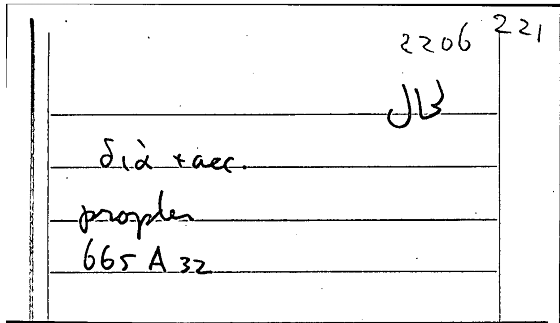 2206 221
JB
διὰ + acc.
propter
665 A 32